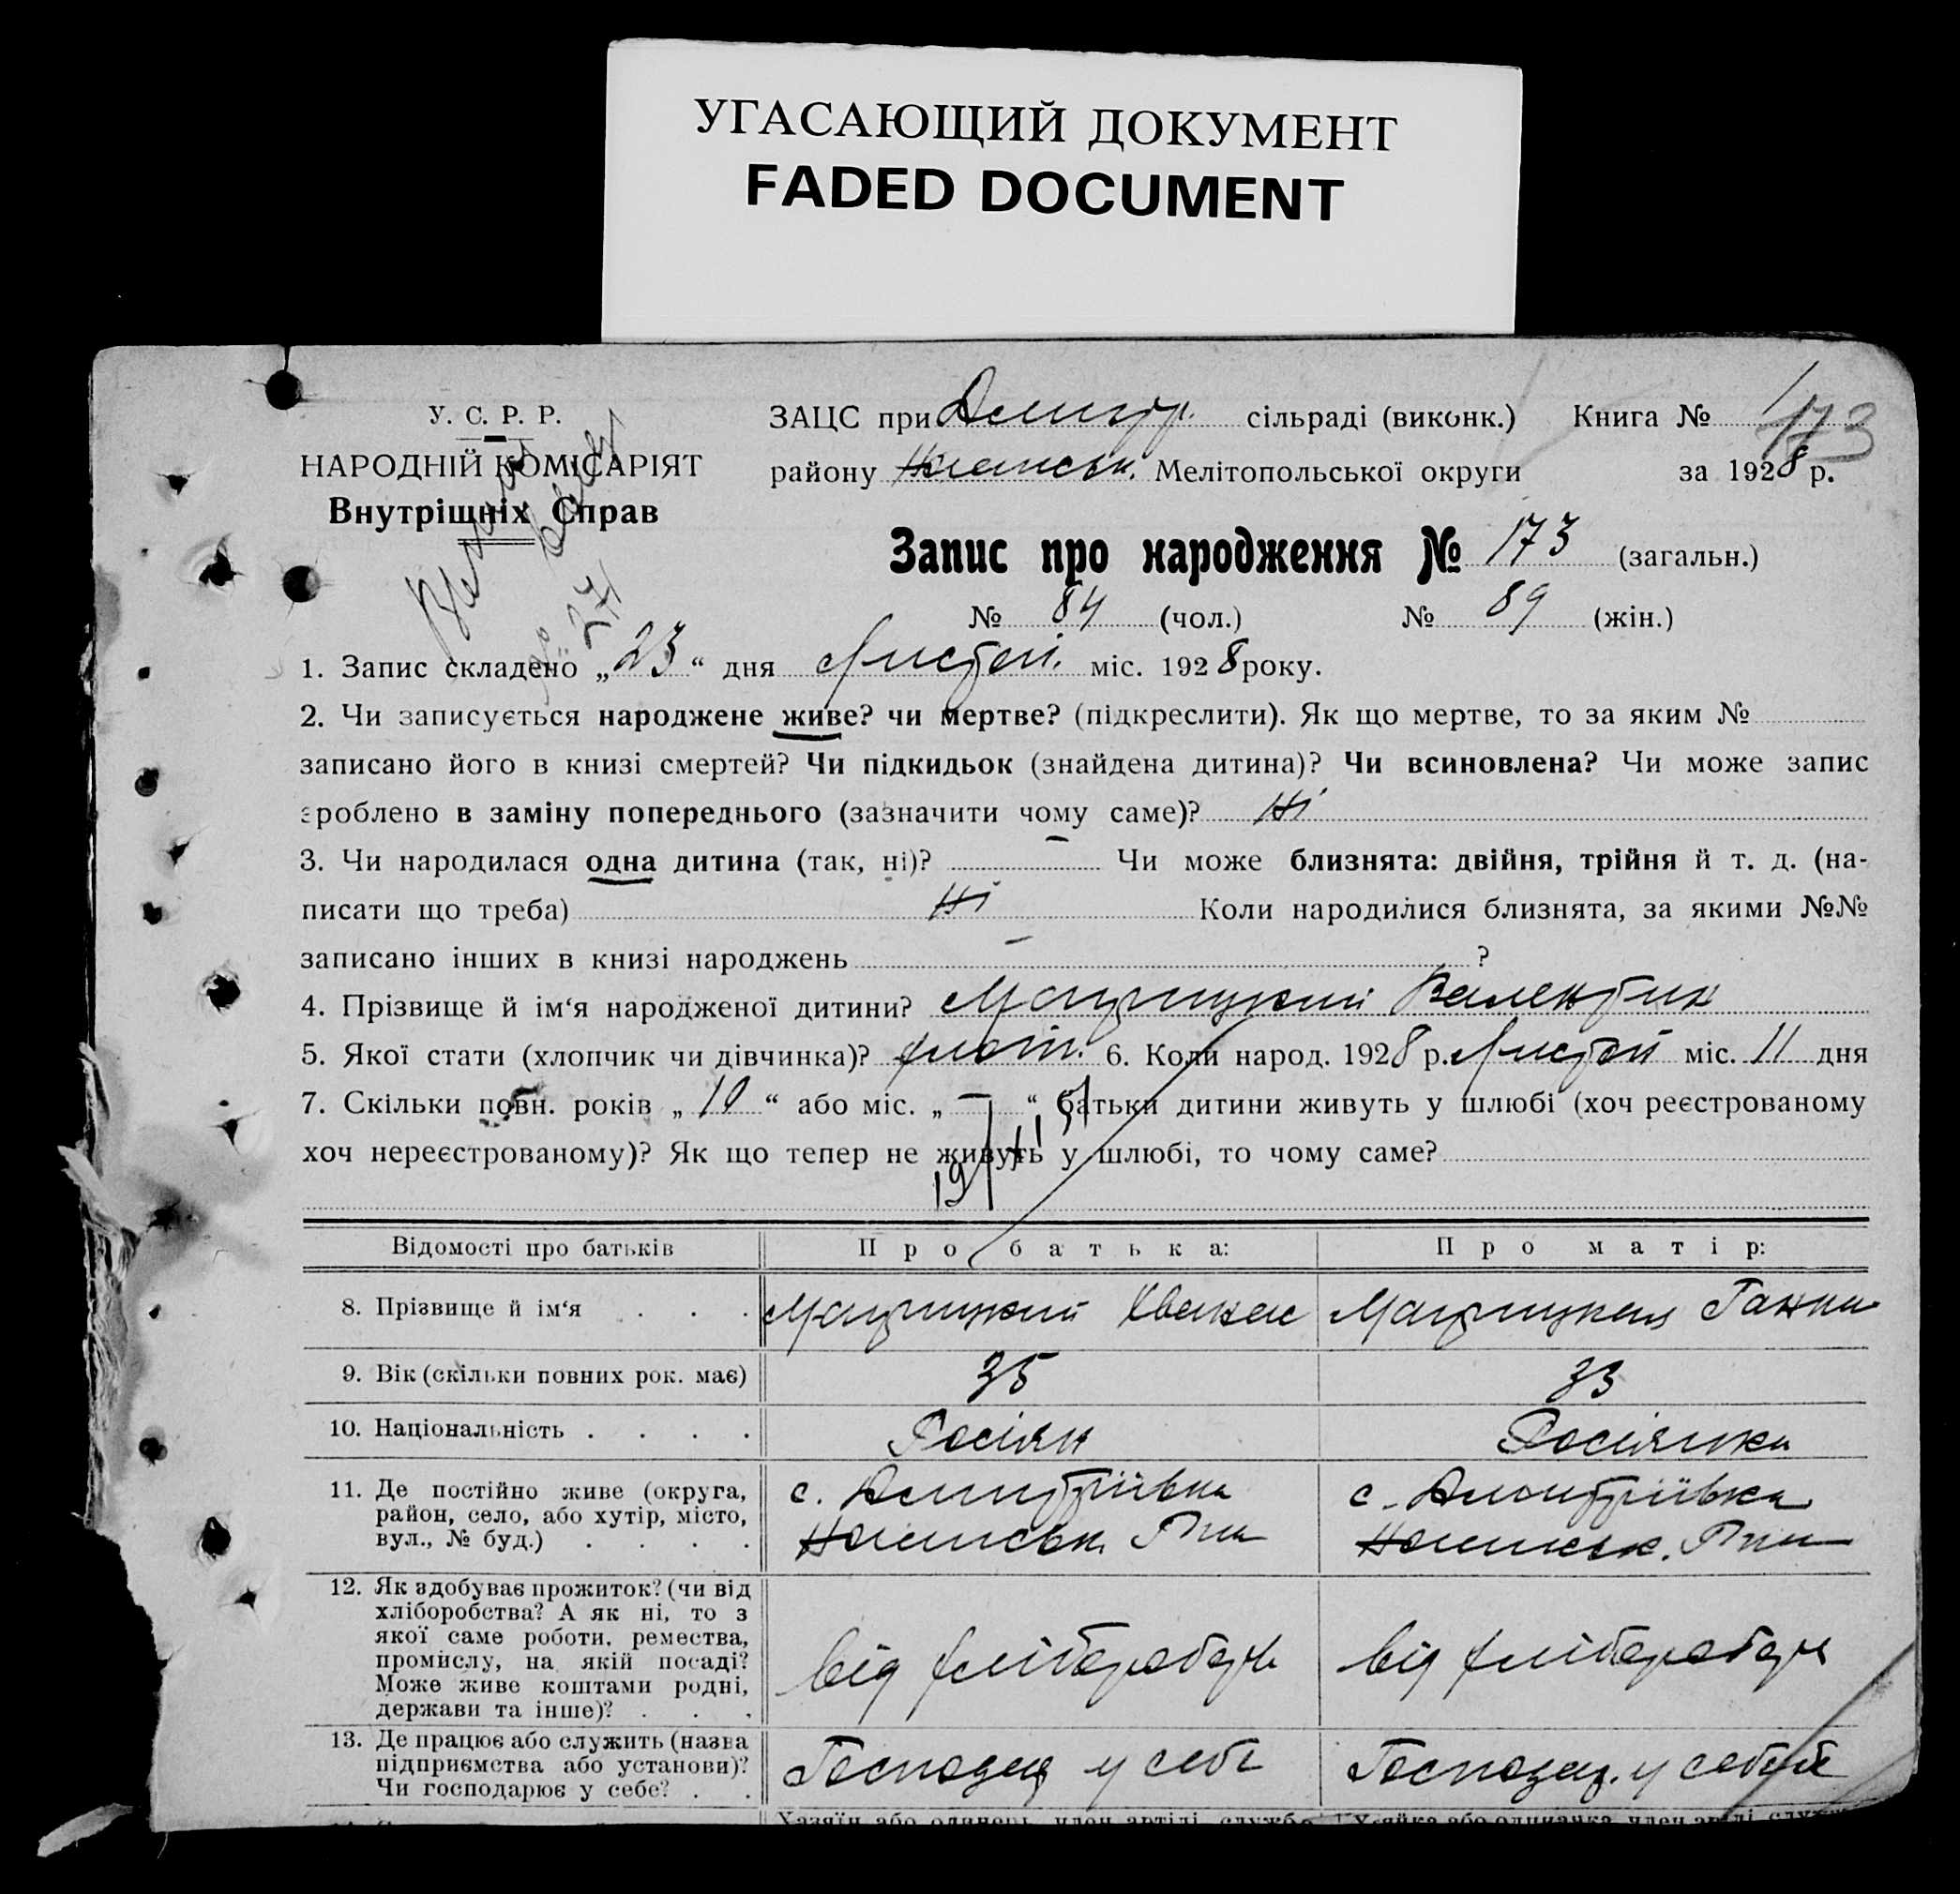 УГАСАЮЩИЙ ДОКУМЕНТ
FADED DOCUMENT
У. С. Р. Р.
НАРОДНІЙ КОМІСАРІЯТ
Внутрішніх Справ
ЗАЦС при Дмитр. сільраді (виконк.) Книга № 1
173
району Мелітопольської округи за 1928 р.
Запис про народження № 173 (загальн.)
№ 84 (чол.) № 89 (жін.)
1. Запис складено „23“ дня Листоп. міс. 1928 року.
2. Чи записується народжене живе? чи мертве? (підкреслити). Як що мертве, то за яким №
записано його в книзі смертей? Чи підкидьок (знайдена дитина)? Чи всиновлена? Чи може запис
зроблено в заміну попереднього (зазначити чому саме)? Ні
3. Чи народилася одна дитина (так, ні)? — Чи може близнята: двійня, трійня й т. д. (на-
писати що треба) Ні Коли народилися близнята, за якими №№
записано інших в книзі народжень — ?
4. Прізвище й ім‘я народженої дитини? Валентин
5. Якої стати (хлопчик чи дівчинка)? хлоп. 6. Коли народ. 1928 р. Листоп міс. 11 дня
7. Скільки повн. років „10“ або міс. „—“ батьки дитини живуть у шлюбі (хоч реєстрованому
хоч нереєстрованому)? Як що тепер не живуть у шлюбі, то чому саме?
Відомості про батьків Про батька: Про матір:
8. Прізвище й ім‘я . . . Ганна
9. Вік (скільки повних рок. має) 35 33
10. Національність . . . . Росіян Росіянка
11. Де постійно живе (округа, с. Дмитріївка с. Дмитріївка
район, село, або хутір, місто,
вул., № буд.) . . . .
12. Як здобуває прожиток? (чи від
хліборобства? А як ні, то з
якої саме роботи, ремества,
промислу, на якій посаді? від хлібороб від хлібороб
Може живе коштами родні,
держави та інше)? . . .
13. Де працює або служить (назва
підприємства або установи)? Господар у себе Господар. у себе
Чи господарює у себе? . .
Хазяїн або одинець, член артілі, службо Хазяйка або одиначка, член артілі служ